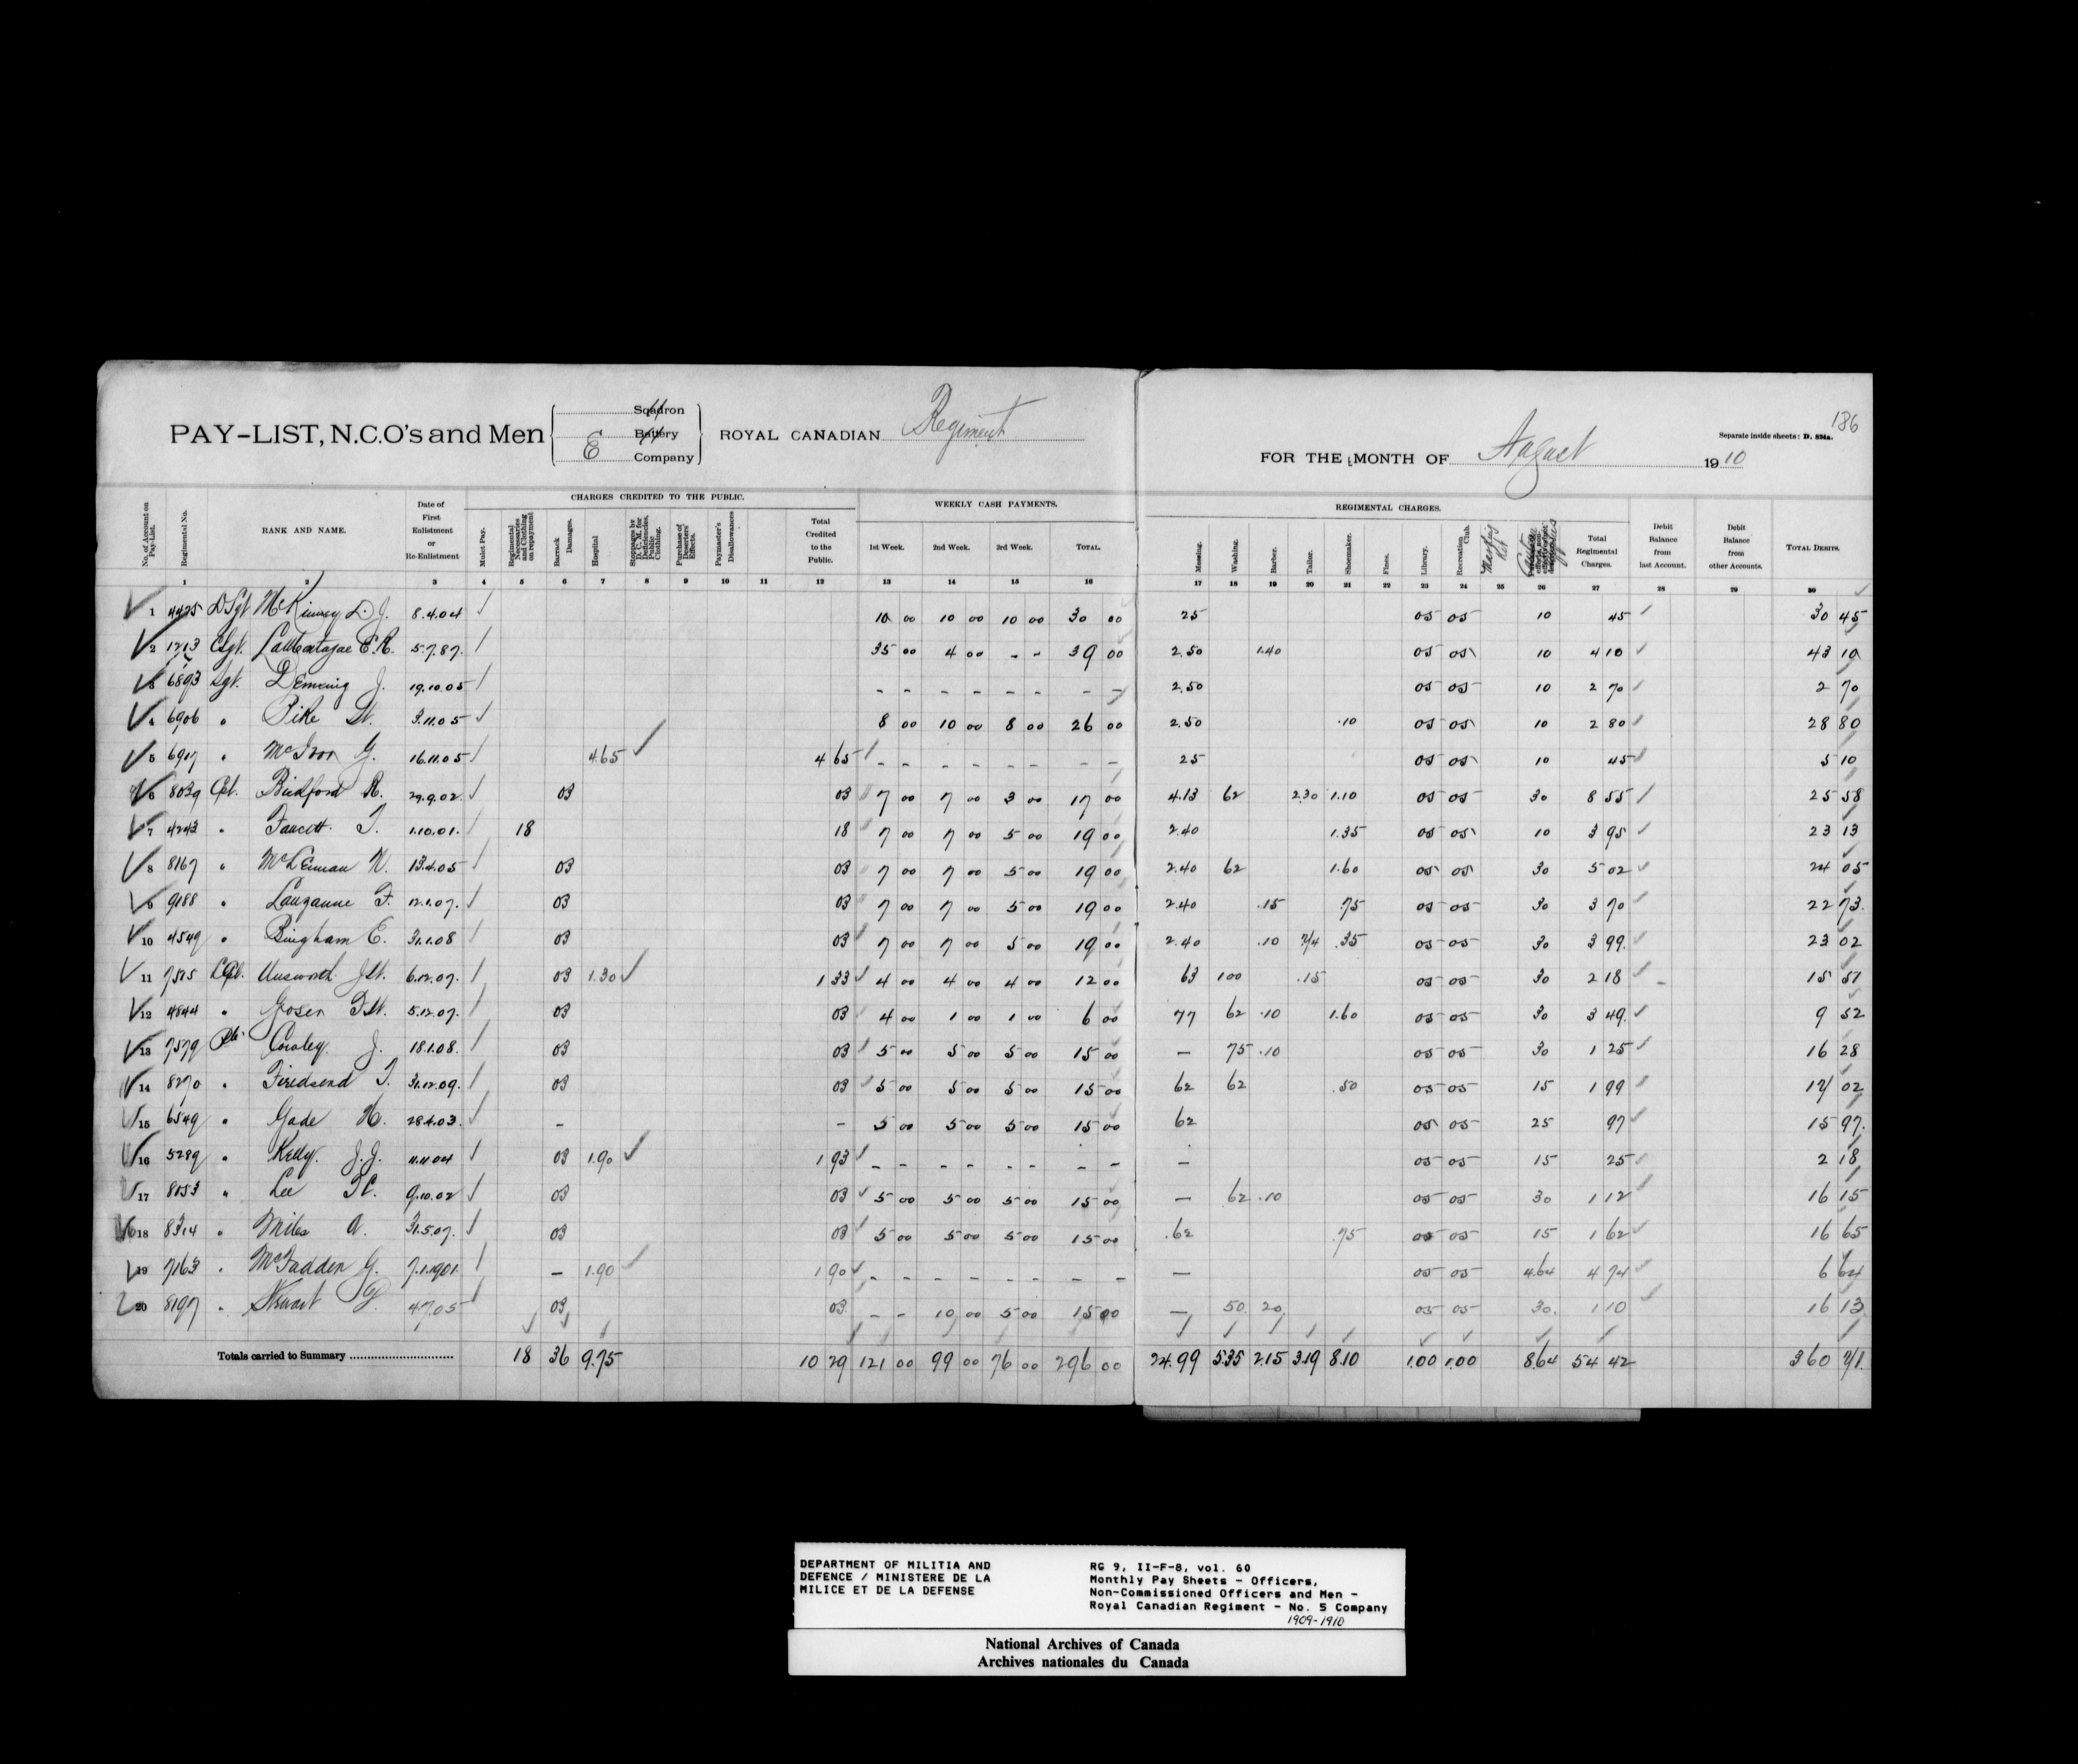 186
PAY-LIST, N.C.O's and Men
Squadron
Battery
E Company
ROYAL CANADIAN Regiment
Separate inside sheets: D.
FOR THE MONTH OF August 1910
CHARGES CREDITED TO THE PUBLIC. WEEKLY CASH PAYMENTS. REGIMENTAL CHARGES.
No. of Account on Pay-List. Regimental No. RANK AND NAME. Date of First Enlistment or Re-Enlistment Mulct Pay. Regimental Necessaries and Clothing on repayment Barrack Damages. Hospital Stoppages by D. C. M. for Deficiencies, Public Clothing. Purchase of Deserters' Effects. Paymaster's Disallowances Total Credited to the Public. 1st Week. 2nd Week. 3rd Week. TOTAL. Messing. Washing. Barber. Tailor. Shoemaker. Fines. Library. Recreation Club. Total Regimental Charges. Debit Balance from last Account. Debit Balance from other Accounts. TOTAL DEBITS.
1 2 3 4 5 6 7 8 9 10 11 12 13 14 15 16 17 18 19 20 21 22 23 24 25 26 27 28 29 30
1 4425 McKinney D. J. 8.4.04 10 00 10 00 10 00 30 00 25 05 05 10 45 30 45
2 1213 CSgt. E.R. 5.7.87. 35 00 4 00 - - 39 00 2.50 1.40 05 05 10 4 10 43 10
3 6893 Sgt. Demxing J. 19.10.05 - - - - - - - - 2.50 05 05 10 2 70 2 70
4 6906 " Pike W. 3.11.05 8 00 10 00 8 00 26 00 2.50 .10 05 05 10 2 80 28 80
5 6917 " McIvor G. 16.11.05 4.65 4 65 - - - - - - - - 25 05 05 10 45 5 10
6 8039 Cpl. Bridford R. 29.9.02. 03 03 7 00 7 00 3 00 17 00 4.13 62 2.30 1.10 05 05 30 8 55 25 58
7 4243 " Faucett T. 1.10.01. 18 18 7 00 7 00 5 00 19 00 2.40 1.35 05 05 10 3 95 23 13
8 8167 " McLennan N. 13.4.05 03 03 7 00 7 00 5 00 19 00 2.40 62 1.60 05 05 30 5 02 24 05
9 9188 " Lauzanne F. 12.1.07. 03 03 7 00 7 00 5 00 19 00 2.40 .15 .75 05 05 30 3 70 22 73
10 4549 " Bingham E. 31.1.08 03 03 7 00 7 00 5 00 19 00 2.40 .10 74 .35 05 05 30 3 99 23 02
11 7515 LCpl. Unsworth J.W. 6.12.07. 03 1.30 1 33 4 00 4 00 4 00 12 00 63 1 00 .15 05 05 30 2 18 15 51
12 4844 " 5.12.07. 03 03 4 00 1 00 1 00 6 00 77 62 .10 1.60 05 05 30 3 49 9 52
13 7579 Pte. Cowley J. 18.1.08. 03 03 5 00 5 00 5 00 15 00 - 75 .10 05 05 30 1 25 16 28
14 8270 " Firedsend T. 31.12.09. 03 03 5 00 5 00 5 00 15 00 62 62 .50 05 05 15 1 99 17 02
15 6549 " Gade H. 28.4.03. - - 5 00 5 00 5 00 15 00 62 05 05 25 97 15 97
16 5289 " Kelly. J.J. 11.11.04 03 1.90 1 93 - - - - - - - - - 05 05 15 25 2 18
17 8053 " Lee 9.10.02 03 03 5 00 5 00 5 00 15 00 - 62 .10 05 05 30 1 12 16 15
18 8314 " Miles A. 31.5.07. 03 03 5 00 5 00 5 00 15 00 .62 .75 05 05 15 1 62 16 65
19 7163 " McFadden G. 7.1.1901. - 1.90 1 90 - - - - - - - - - 05 05 4.64 4 74 6 64
20 8197 " Stewart 4.7.05 03 03 - - 10 00 5 00 15 00 - 50 20 05 05 30 1 10 16 13
Totals carried to Summary 18 36 9.75 10 29 121 00 99 00 76 00 296 00 24.99 5.35 2.15 3.19 8.10 1.00 1.00 8.64 54 42 360 71
DEPARTMENT OF MILITIA AND
DEFENCE / MINISTERE DE LA
MILICE ET DE LA DEFENSE
RG 9, II-F-8, vol. 60
Monthly Pay Sheets - Officers,
Non-Commissioned Officers and Men -
Royal Canadian Regiment - No. 5 Company
1909-1910
National Archives of Canada
Archives nationales du Canada